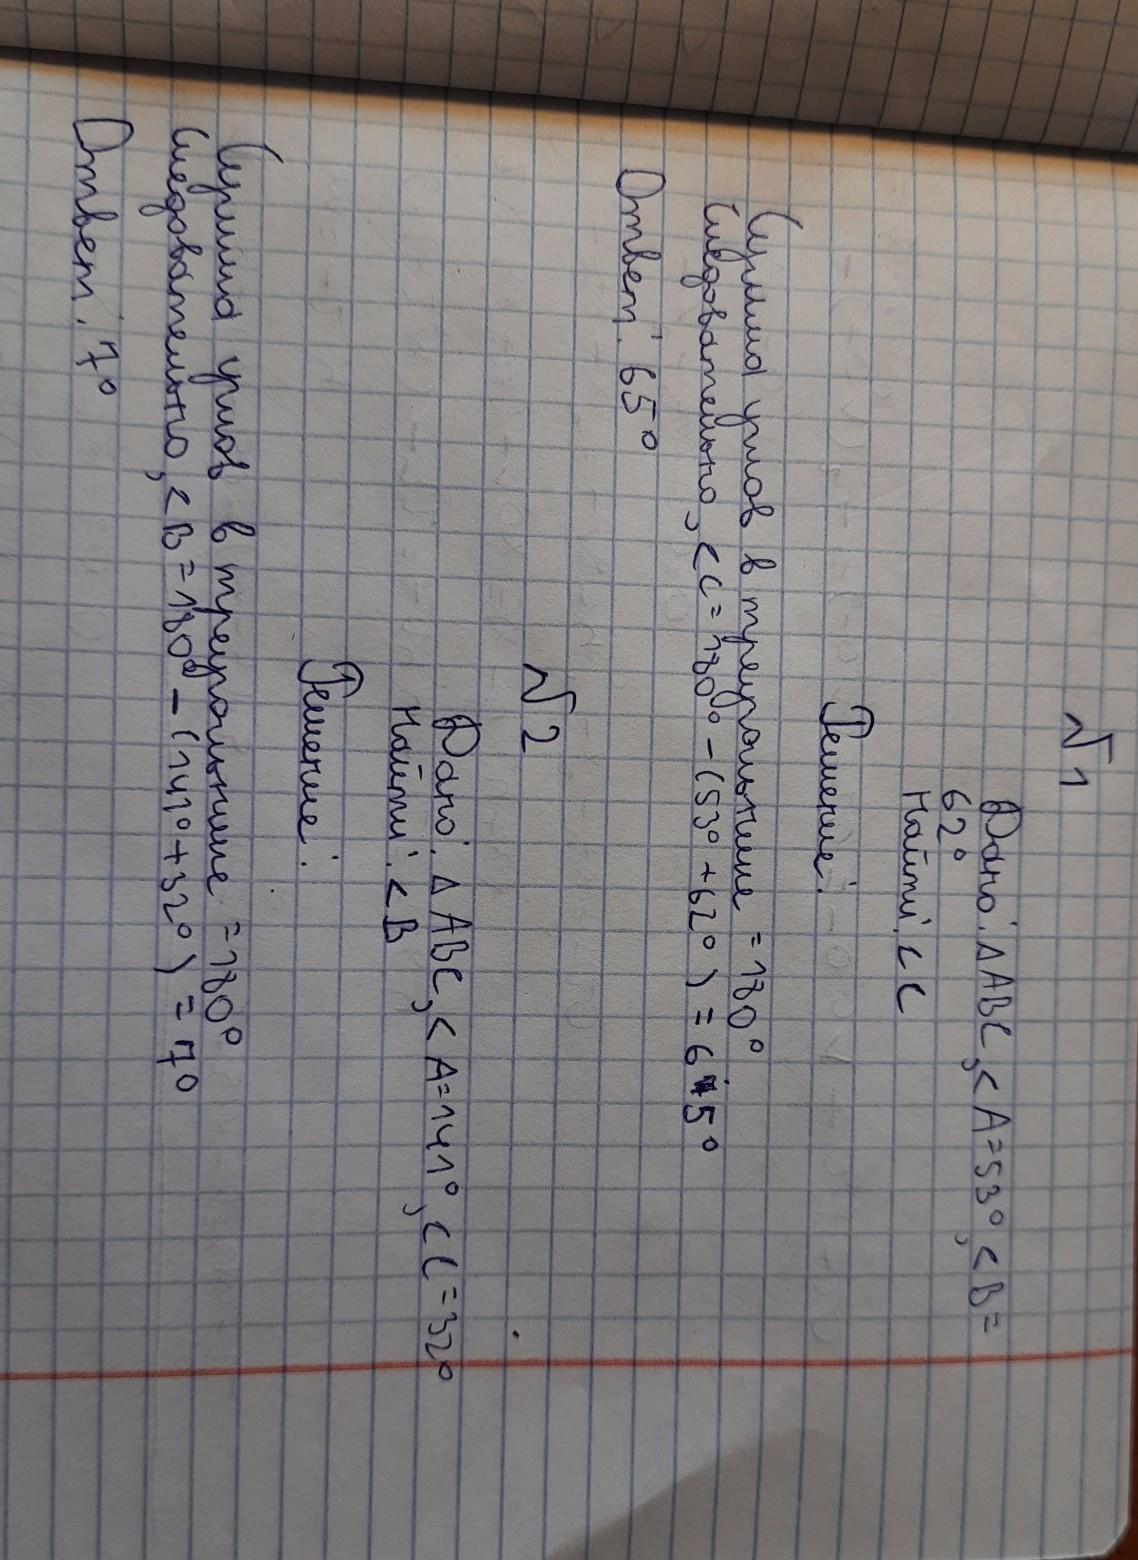 №1
Дано: △ABC, <A=53°, <B=
62°
Найти: <C
Решение:
Сумма углов в треугольнике =180°
Следовательно, <C=180°-(53°+62°)=65°
Ответ: 65°
№2
Дано: △ABC, <A=141°, <C=32°
Найти: <B
Решение:
Сумма углов в треугольнике =180°
Следовательно, <B=180°-(141°+32°)=7°
Ответ: 7°